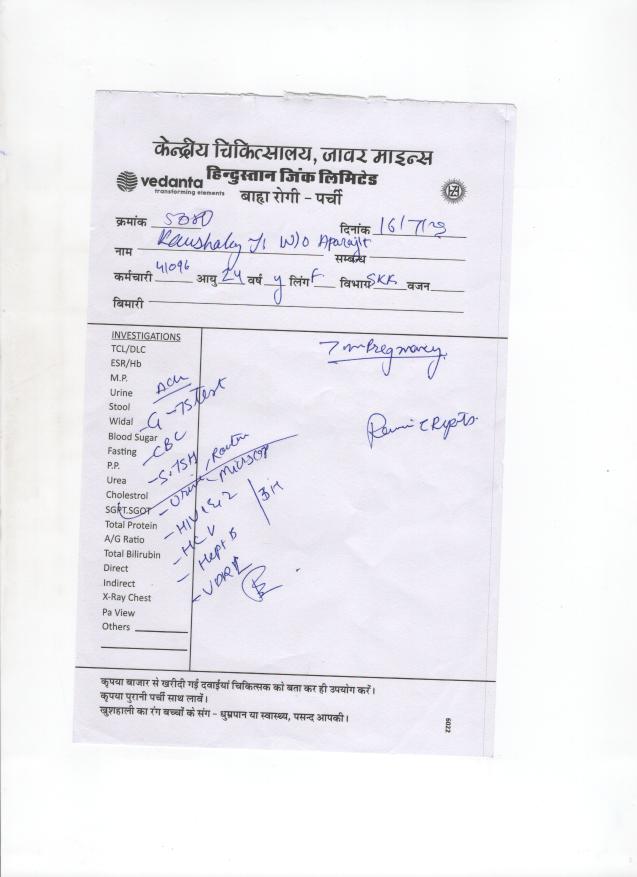 केन्द्रीय चिकित्सालय, जावर माइन्स
vedanta
transforming elements
हिन्दुस्तान जिंक लिमिटेड
बाह्य रोगी - पर्ची
क्रमांक
दिनांक 16/7/
नाम W/O Aparajit सम्बन्ध
कर्मचारी 41096 आयु 24 वर्ष y लिंग F विभाग SKK वजन
बिमारी
INVESTIGATIONS
TCL/DLC
ESR/Hb
M.P.
Urine
Stool
Widal
Blood Sugar
Fasting
P.P.
Urea
Cholestrol
SGPT.SGOT
Total Protein
A/G Ratio
Total Bilirubin
Direct
Indirect
X-Ray Chest
Pa View
Others
Adv
- CBC
- S.TSH
- Urine - Routine
- Microscop
- HIV 1 & 2
- HCV
- Hept B
- VDRL
Pregnancy
कृपया बाजार से खरीदी गई दवाईयां चिकित्सक को बता कर ही उपयोग करें।
कृपया पुरानी पर्ची साथ लावें।
खुशहाली का रंग बच्चों के संग - धुम्रपान या स्वास्थ्य, पसन्द आपकी।
6022